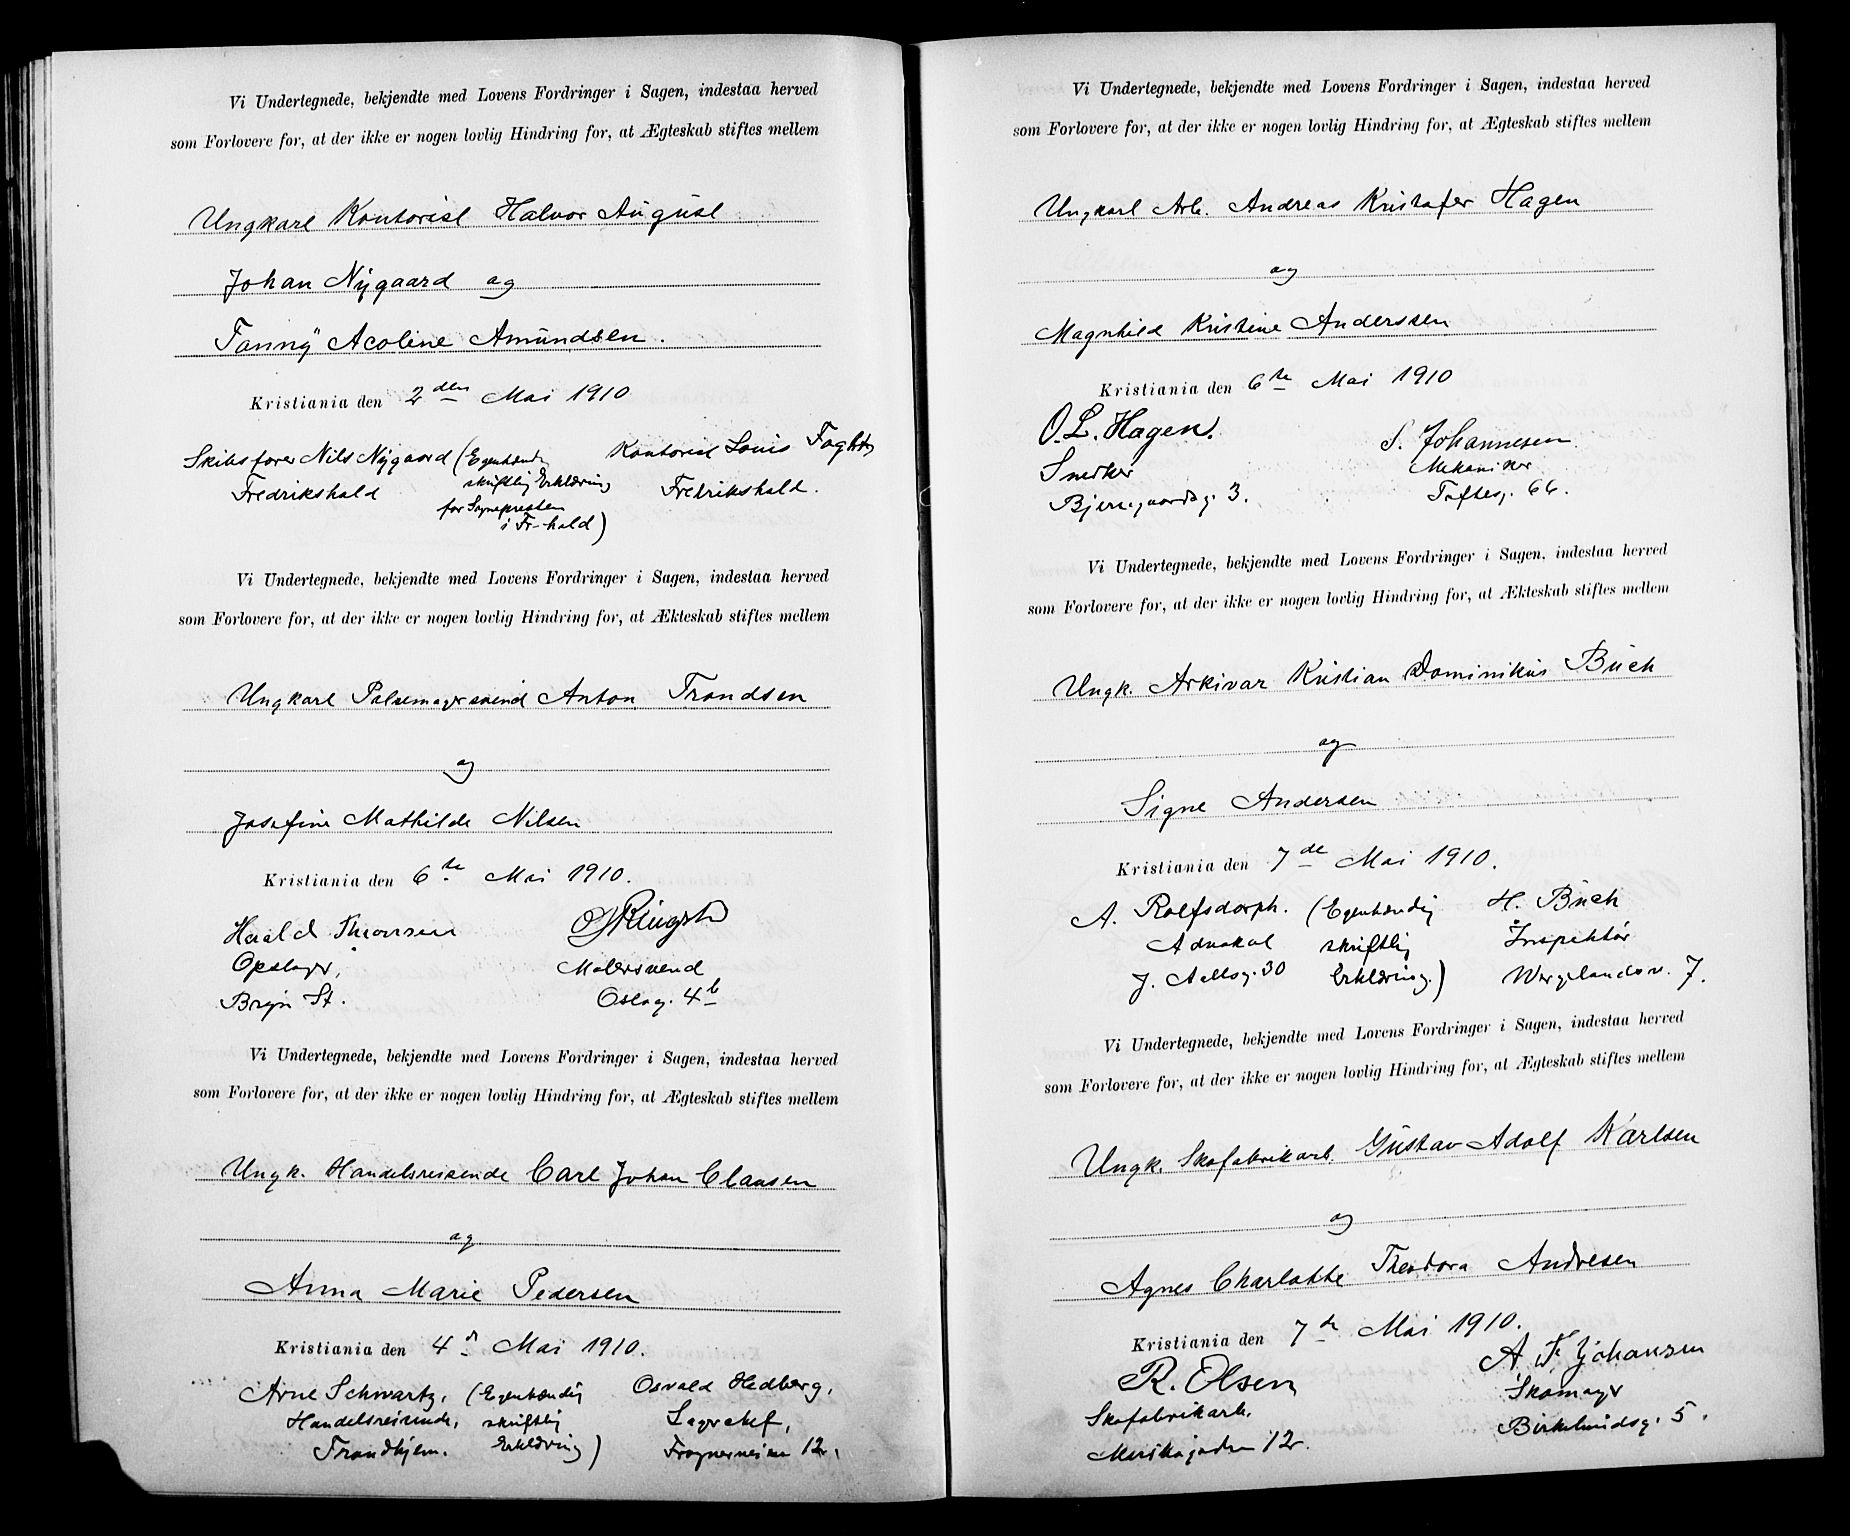 Vi Undertegnede, bekjendte med Lovens Fordringer i Sagen, indestaa herved
som Forlovere for, at der ikke er nogen lovlig Hindring for, at Ægteskab stiftes mellem
Ungkarl Kontorist Halvor August
Johan Nygaard og
Fanny Acoline Amundsen.
Kristiania den 2den Mai 1910
Skibsfører Nils Nygaard (Egenhændig Kontorist Louis
Fredrikshald skriftlig Erklæring Fredrikshald.
for Sognepresten
i Fr-hald)
Vi Undertegnede, bekjendte med Lovens Fordringer i Sagen, indestaa herved
som Forlovere for, at der ikke er nogen lovlig Hindring for, at Ækteskab stiftes mellem
Ungkarl Pølsemagersvend Anton Trondsen
og
Josefine Mathilde Nilsen
Kristiania den 6te Mai 1910.
Harald Thronsen
Opslager, Malersvend
Bryn St. Oslog. 4b
Vi Undertegnede, bekjendte med Lovens Fordringer i Sagen, indestaa herved
som Forlovere for, at der ikke er nogen lovlig Hindring for, at Ægteskab stiftes mellem
Ungk. Handelsreisende Carl Johan Clausen
og
Anna Marie Pedersen
Kristiania den 4d Mai 1910.
Arne Schwartz, (Egenhændig Osvald Hedberg,
Handelsreisende, skriftlig Lagerchef,
Trondhjem. Erklæring) Frognerveien 12.
Vi Undertegnede, bekjendte med Lovens Fordringer i Sagen, indestaa herved
som Forlovere for, at der ikke er nogen lovlig Hindring for, at Ægteskab stiftes mellem
Ungkarl Arb. Andreas Kristofer Hagen
og
Magnhild Kristine Anderssen
Kristiania den 6te Mai 1910
O. L. Hagen. S. Johannesen
Snedker Mekaniker
Bjerregaardsg. 3. Toftesg. 66.
Vi Undertegnede, bekjendte med Lovens Fordringer i Sagen, indestaa herved
som Forlovere for, at der ikke er nogen lovlig Hindring for, at Ækteskab stiftes mellem
Ungk. Arkivar Kristian Dominikus Buch
og
Signe Andersen
Kristiania den 7de Mai 1910.
A. Rolfsdorph. (Egenhændig H. Buch
Advokat skriftlig Inspektør
J. Aallsg. 30 Erklæring.) Wergelandsv. 7.
Vi Undertegnede, bekjendte med Lovens Fordringer i Sagen, indestaa herved
som Forlovere for, at der ikke er nogen lovlig Hindring for, at Ægteskab stiftes mellem
Ungk. Skofabrikarb. Gustav Adolf Karlsen
og
Agnes Charlotte Theodora Andresen
Kristiania den 7de Mai 1910.
R. Olsen A. F. Johansen
Skofabrikarb. Skomager
12. Birkelundsg. 5.